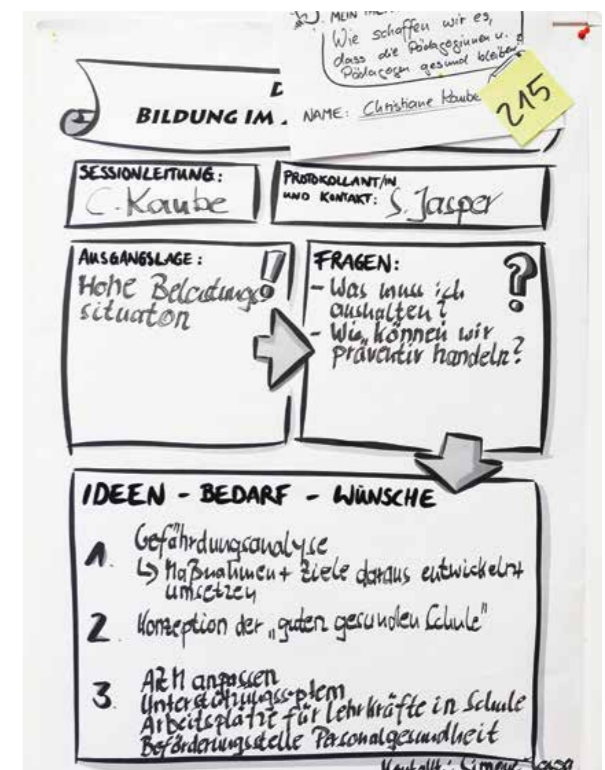 MEIN
Wie schaffen wir es,
dass die Pädagoginnen u.
Pädagogen gesund bleiben
NAME: Christiane Kaube
215
D
BILDUNG IM
SESSIONLEITUNG:
C. Kaube
PROTOKOLLANT/IN
UND KONTAKT: S. Jasper
AUSGANGSLAGE:
Hohe Belastungs
situaton
FRAGEN:
- Was muss ich
aushalten?
- Wie können wir
präventiv handeln?
IDEEN - BEDARF - WÜNSCHE
1. Gefährdungsanalyse
↳ Maßnahmen + Ziele daraus entwickeln +
umsetzen
2. Konzeption der „guten gesunden Schule"
3. AZM anpassen
Unterstützungssystem
Arbeitsplätze für Lehrkräfte in Schule
Beförderungsstelle Personalgesundheit
Kontakt: Simone